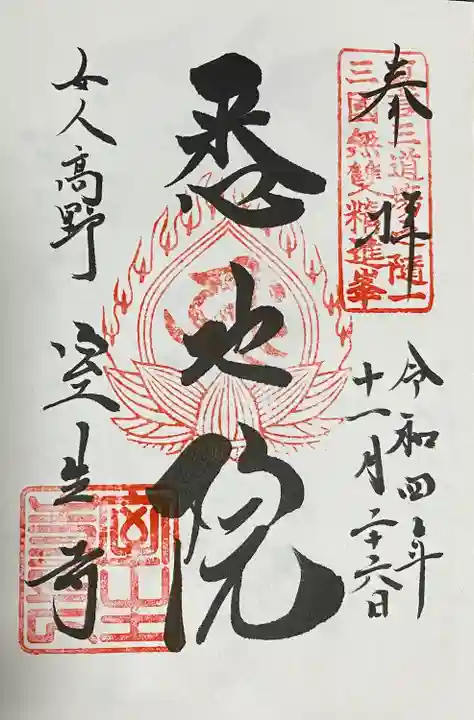 奉拝
三國無雙精進峯
令和四年
十一月二十六日
悉地院
女人高野
室生寺